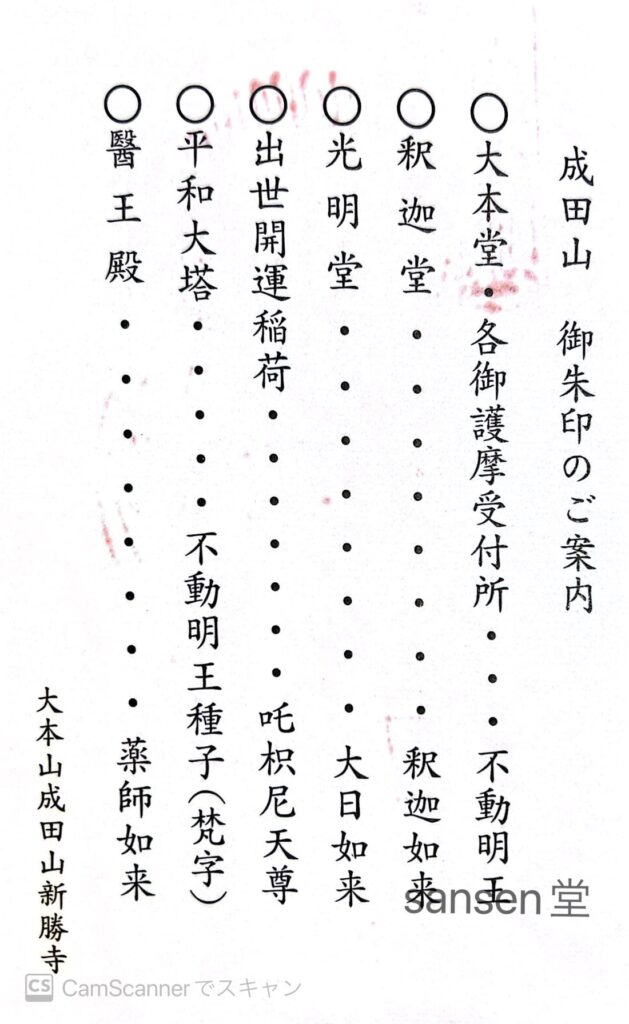 成田山　御朱印のご案内
○大本堂・各御護摩受付所・・・不動明王
○釈迦堂・・・・・・・・釈迦如来
○光明堂・・・・・・・・大日如来
○出世開運稲荷・・・・・・吒枳尼天尊
○平和大塔・・・・・不動明王種子(梵字)
○醫王殿・・・・・・・・薬師如来
大本山成田山新勝寺
sansen堂
CS CamScannerでスキャン